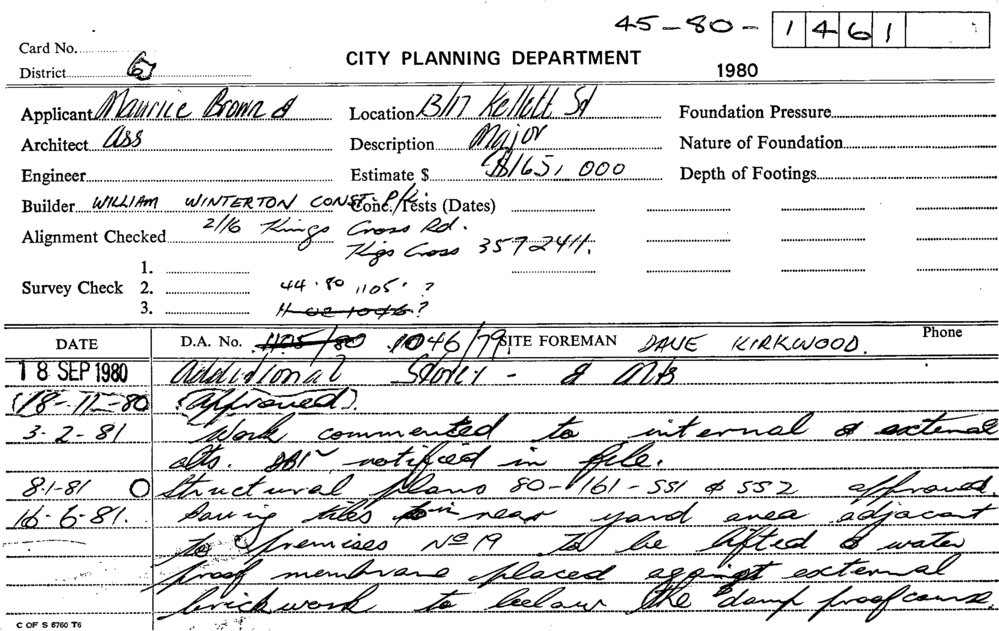 45-80- 1461
Card No.
District 6
CITY PLANNING DEPARTMENT
1980
Applicant Maurice Brown &
Location 13/17 Kellett St
Foundation Pressure
Architect Ass
Description Major
Nature of Foundation
Engineer
Estimate $ $165,000
Depth of Footings
Builder WILLIAM WINTERTON CONST. P/L
Conc. Tests (Dates)
Alignment Checked
2/16 Kings Cross Rd.
Kigs Cross 357 2411.
1.
Survey Check 2. 44.80 1105. ?
3. 11-02-1046?
DATE
D.A. No. 1105/80 1046/79
SITE FOREMAN DAVE KIRKWOOD.
Phone
18 SEP 1980 Additional Storey - & Alts
(18-11-80 (Approved).
3-2-81 Work commented to internal & external
alts. notified in file.
8-1-81 O Structural plans 80-161-551 & 552 approved.
16-6-81. Paving tiles in rear yard area adjacant
to premises No 19 to be lifted & water
proof membrane placed against external
brickwork to below the damp proofcourse.
C OF S 6760 T6